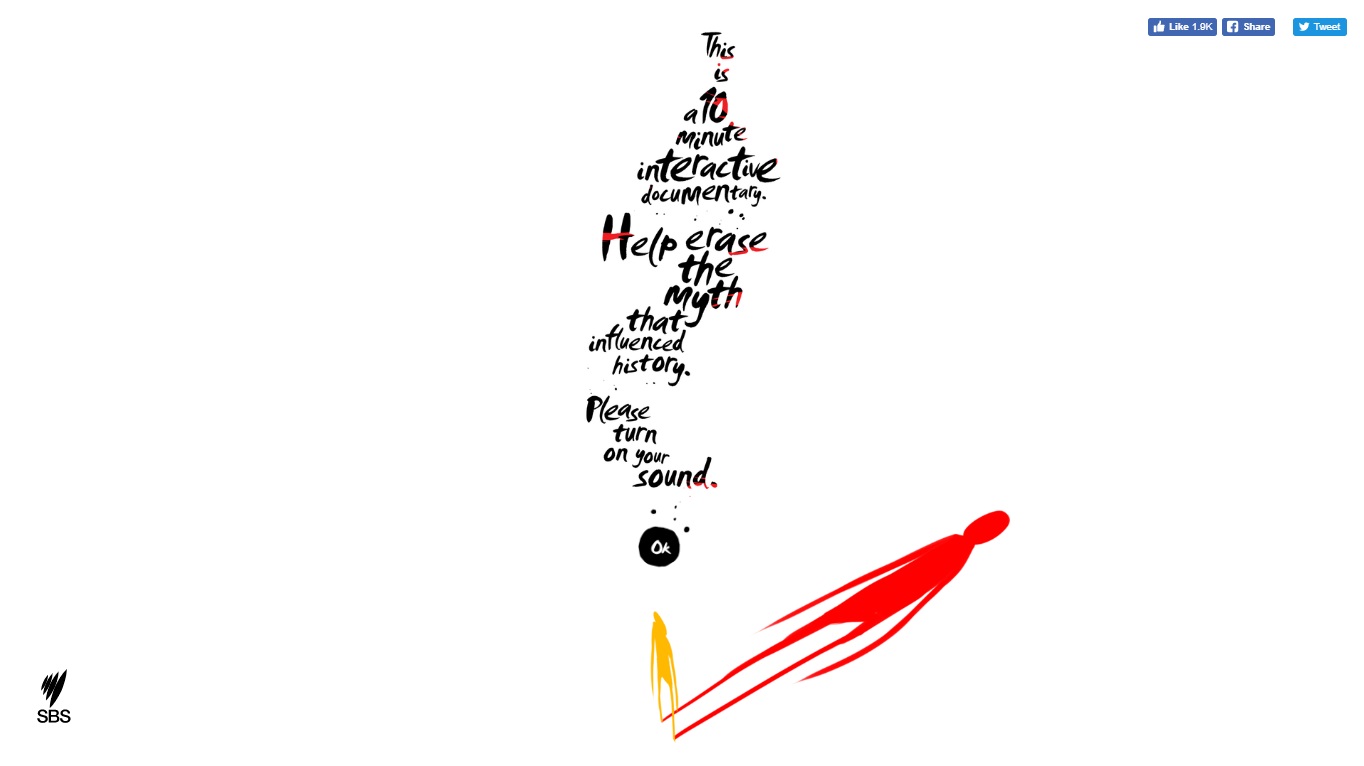 Like 1.9K Share Tweet
This
is
a 10
minute
interactive
documentary.
Help erase
the
myth
that
influenced
history.
Please
turn
on your
sound.
Ok
SBS